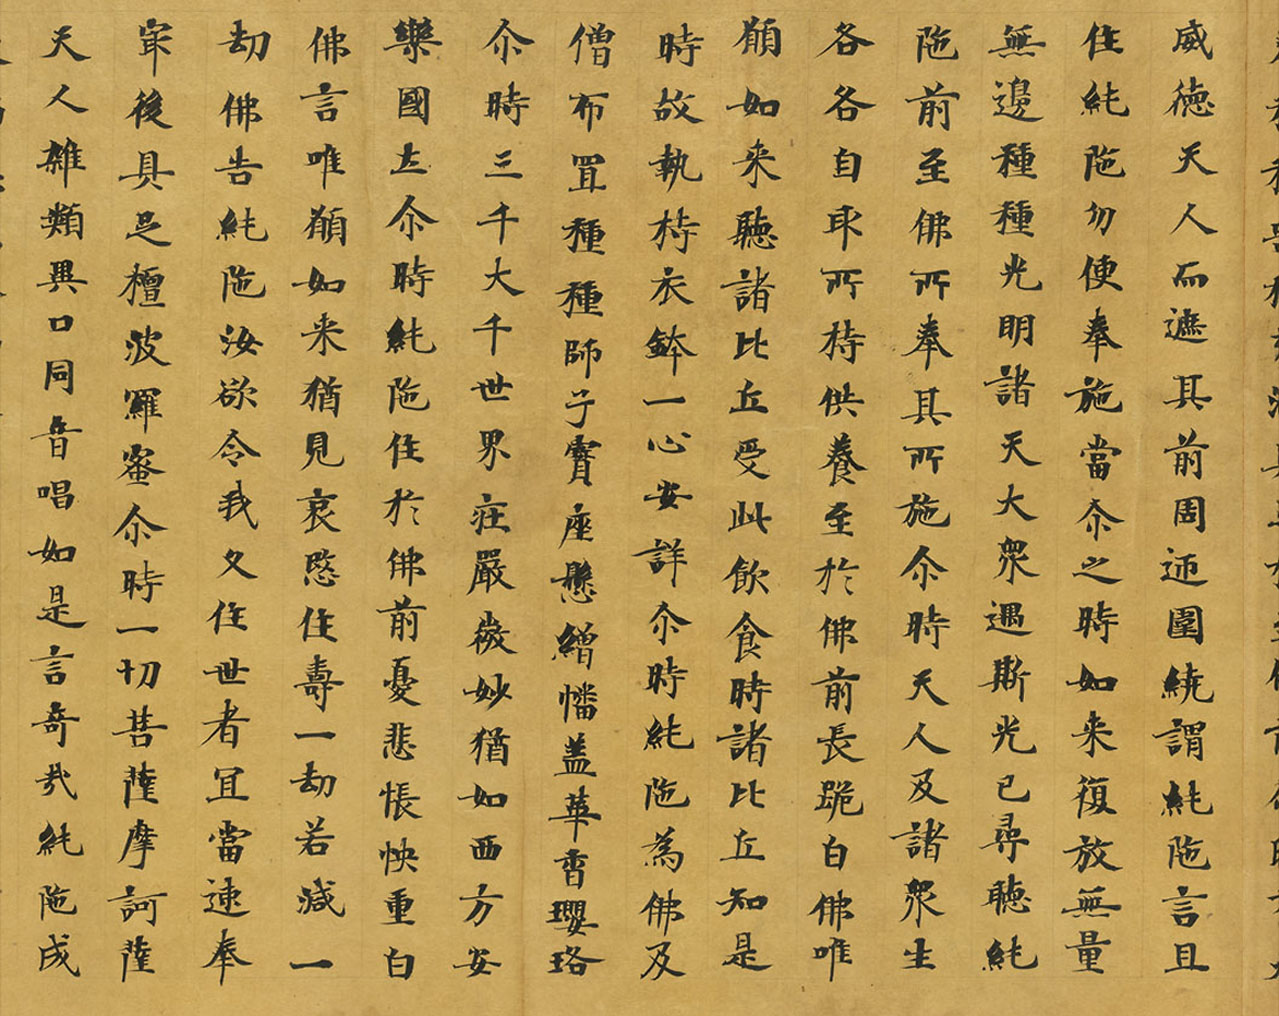 威德天人而遮其前周迊圍繞謂純陁言且
住純陁勿便奉施當尒之時如来復放無量
無邊種種光明諸天大衆遇斯光已尋聽純
陁前至佛所奉其所施尒時天人及諸衆生
各各自取所持供養至於佛前長跪白佛唯
願如来聽諸比丘受此飲食時諸比丘知是
時故執持衣鉢一心安詳尒時純陁為佛及
僧布置種種師子寶座懸繒幡盖華香瓔珞
尒時三千大千世界莊嚴微妙猶如西方安
樂國土尒時純陁住於佛前憂悲悵怏重白
佛言唯願如来猶見哀愍住壽一劫若減一
劫佛告純陁汝欲令我久住世者宜當速奉
㝡後具足檀波羅蜜尒時一切菩薩摩訶薩
天人雜類異口同音唱如是言奇哉純陁成